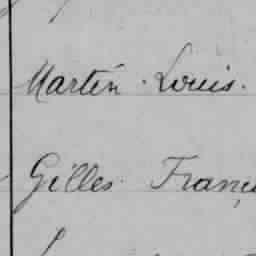 Martin Louis.
Gilles Franç